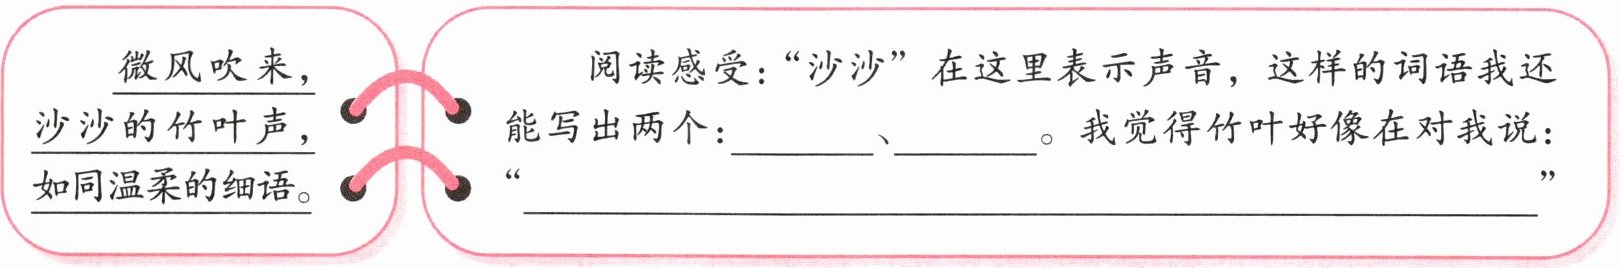 微风吹来，
沙沙的竹叶声，
如同温柔的细语。
阅读感受：“沙沙”在这里表示声音，这样的词语我还
能写出两个：________、________。我觉得竹叶好像在对我说：
“________________________________”